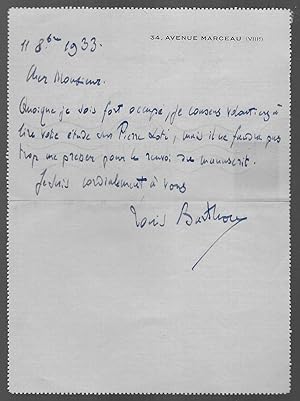 34, AVENUE MARCEAU (VIIIe)
11 8bre 1933.
Cher Monsieur.
Quoique je sois fort occupé, je consens volontiers à
lire votre étude sur Pierre Loti, mais il ne faudra pas
trop me presser pour le renvoi du manuscrit.
Je suis cordialement à vous
Louis Barthou